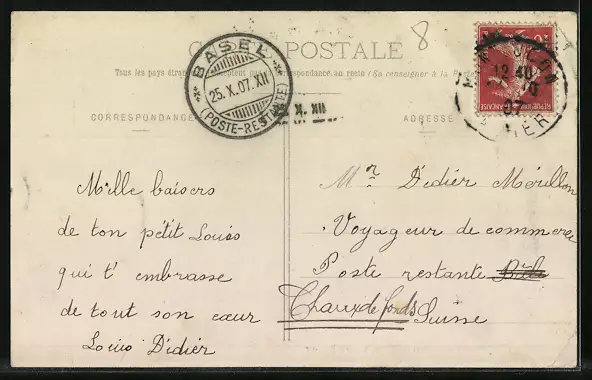 8
CARTE POSTALE
Tous les pays étrangers n'acceptent pas la correspondance au recto (Se renseigner à la Poste)
CORRESPONDANCE
ADRESSE
BASEL
25.X.07.XII
(POSTE-RESTANTE)
X. XII
12 40
07
REPUBLIQUE FRANÇAISE
Mille baisers
de ton pétit Louis
qui t'embrasse
de tout son cœur
Louis Didiér
Mr Didiér Mérillon
Voyageur de commerce
Poste restante Bâle
Chaux de fonds Suisse